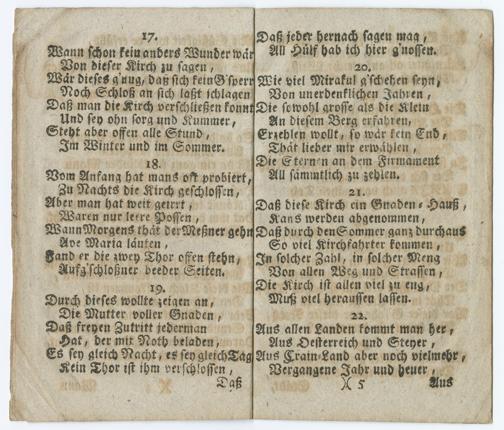 17.
Wann schon kein anders Wunder wär
Von dieser Kirch zu sagen,
Wär dieses g'nug, daß sich kein G'sperr
Noch Schloß an sich laßt schlagen
Daß man die Kirch verschließen konnt
Und sey ohn sorg und Kummer,
Steht aber offen alle Stund,
Im Winter und im Sommer.
18.
Vom Anfang hat mans oft probiert,
Zu Nachts die Kirch geschlossen,
Aber man hat weit geirrt,
Waren nur leere Possen,
Wann Morgens thät der Meßner gehn
Ave Maria läuten,
Fand er die zwey Thor offen stehn,
Aufg'schloßner beeder Seiten.
19.
Durch dieses wollte zeigen an,
Die Mutter voller Gnaden,
Daß freyen Zutritt jederman
Hat, der mit Noth beladen,
Es sey gleich Nacht, es sey gleich Tag
Kein Thor ist ihm verschlossen,
Daß
Daß jeder hernach sagen mag,
All Hülf hab ich hier g'nossen.
20.
Wie viel Mirakul g'schehen seyn,
Von unerdenklichen Jahren,
Die sowohl grosse als die Klein
An diesem Berg erfahren,
Erzehlen wollt, so wär kein End,
Thät lieber mir erwählen,
Die Sternen an dem Firmament
All sämmtlich zu zehlen.
21.
Daß diese Kirch ein Gnaden-Hauß,
Kans werden abgenommen,
Daß durch den Sommer ganz durchaus
So viel Kirchfahrter kommen,
In solcher Zahl, in solcher Meng
Von allen Weg und Strassen,
Die Kirch ist allen viel zu eng,
Muß viel heraussen lassen.
22.
Aus allen Landen kommt man her,
Aus Oesterreich und Steyer,
Aus Crain-Land aber noch vielmehr,
Vergangene Jahr und heuer,
)( 5 Aus